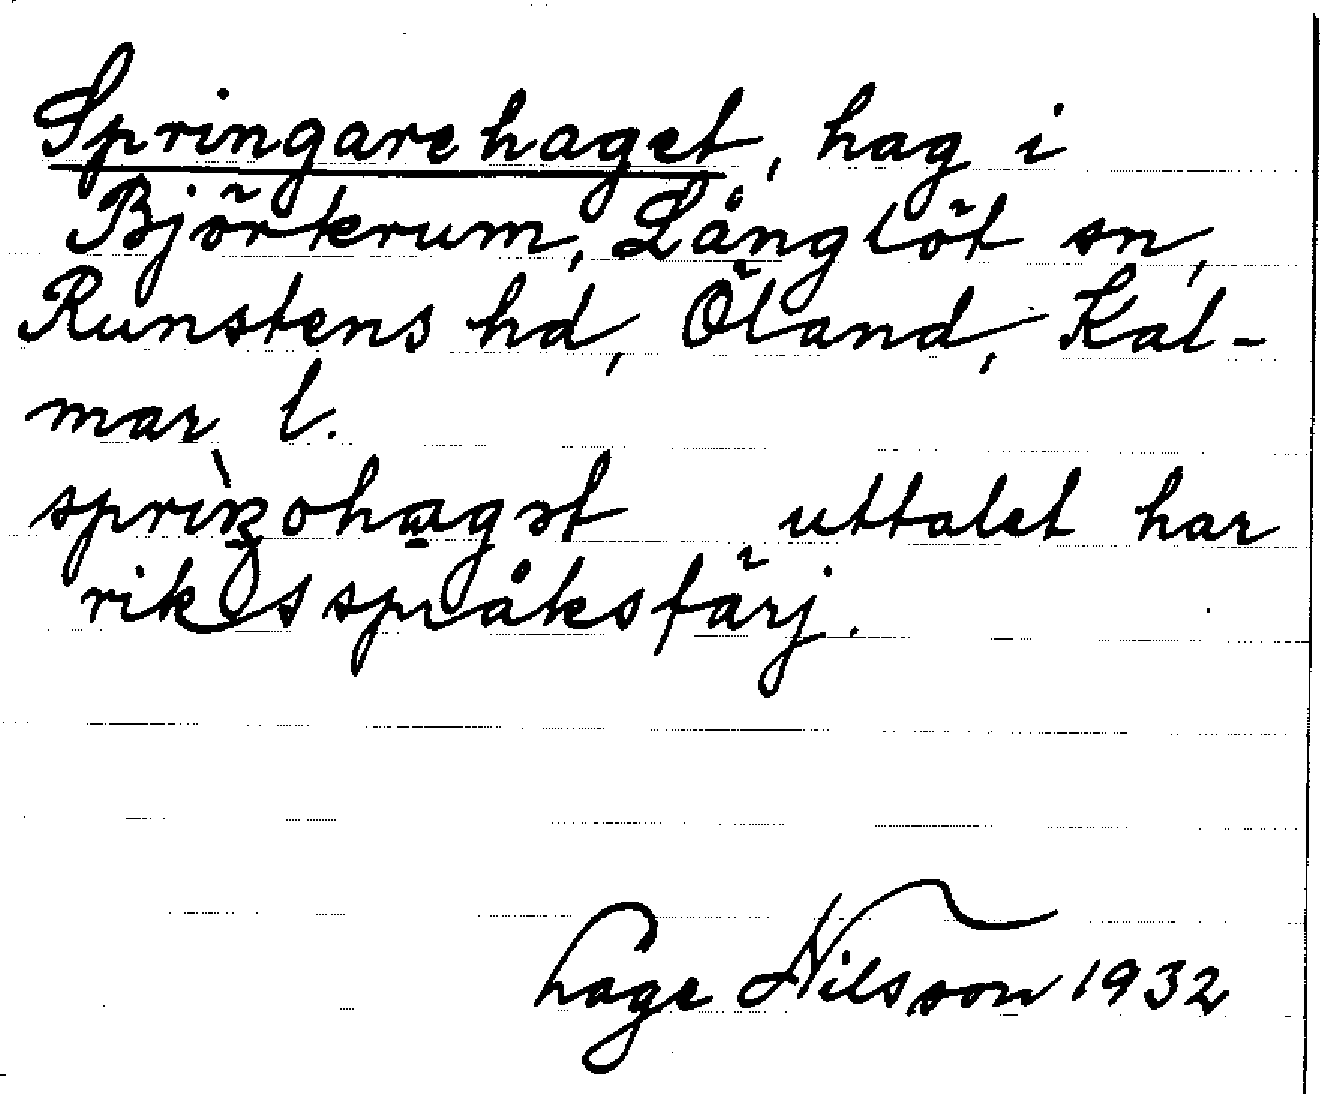 Springarehaget, hag i
Björkerum, Långlöt sn,
Runstens hd, Öland, Kal-
mar l.
uttalet har
riksspråksfärj.
Lage Nilsson 1932